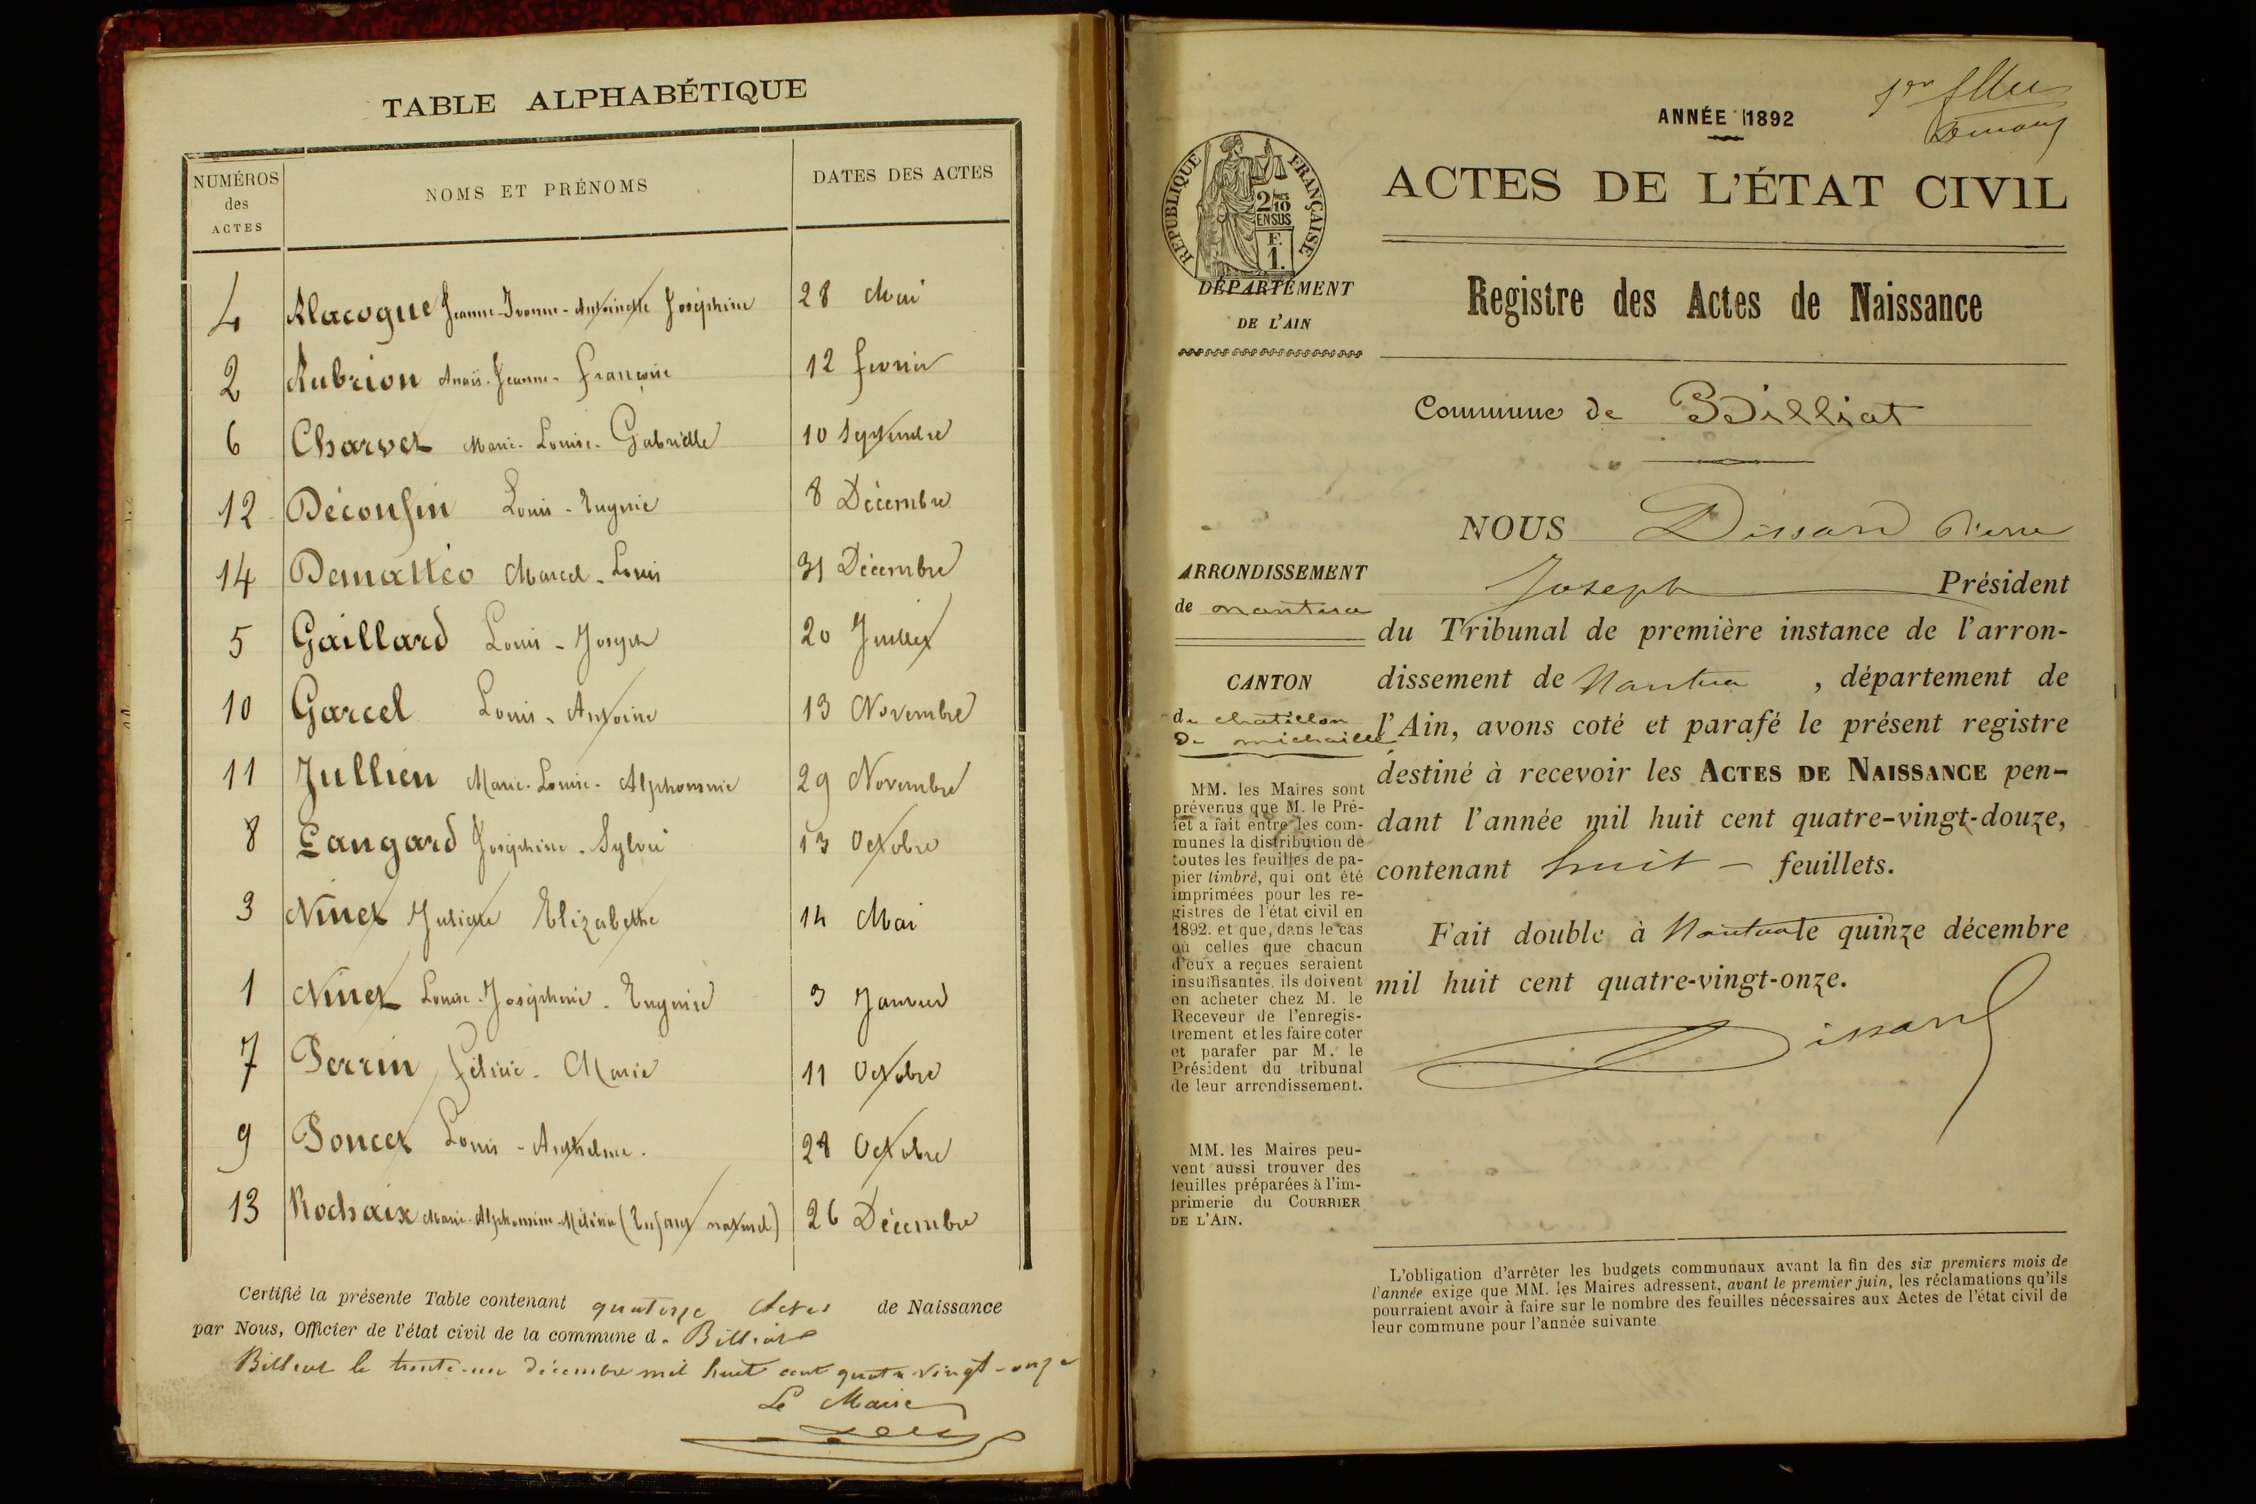 TABLE ALPHABÉTIQUE
NUMÉROS des ACTES
NOMS ET PRÉNOMS
DATES DES ACTES
4 Alacogue Jeanne-Ivonne-Antoinette Joséphine 28 Mai
2 Aubrion Anaïs-Jeanne-Françoise 12 fevrier
6 Charvet Marie-Louise-Gabrielle 10 Septembre
12 Déconfin Louis-Eugenie 8 Décembre
14 Dematteo Marcel-Louis 31 Décembre
5 Gaillard Louis-Joseph 20 Juillet
10 Garcel Louis-Antoine 13 Novembre
11 Jullien Marie-Louise-Alphonsine 29 Novembre
8 Langard Joséphine-Sylvie 13 Octobre
3 Ninet Juliette Elizabethe 14 Mai
1 Ninet Louise-Joséphine-Eugenie 3 Janvier
7 Perrin Félicie-Marie 11 Octobre
9 Poncet Louis-Anthelme. 28 Octobre
13 Rochaix Marie-Alphonsine-Mélina (Enfant naturel) 26 Décembre
Certifié la présente Table contenant quatorze Actes de Naissance
par Nous, Officier de l'état civil de la commune d. Billiat
Billiat le trente-un décembre mil huit cent quatre vingt-onze
Le Maire
1er f
ANNÉE 1892
ACTES DE L'ÉTAT CIVIL
RÉPUBLIQUE FRANÇAISE
2/10
EN SUS
F.
1.
DÉPARTEMENT
DE L'AIN
Registre des Actes de Naissance
Commune de Billiat
NOUS Dissard Pierre
Joseph Président
du Tribunal de première instance de l'arron-
dissement de Nantua, département de
l'Ain, avons coté et parafé le présent registre
destiné à recevoir les ACTES DE NAISSANCE pen-
dant l'année mil huit cent quatre-vingt-douze,
contenant huit feuillets.
Fait double à Nantua le quinze décembre
mil huit cent quatre-vingt-onze.
Dissard
ARRONDISSEMENT
de nantua
CANTON
de chatillon
de michaille
MM. les Maires sont
prévenus que M. le Pré-
fet a fait entre les com-
munes la distribution de
toutes les feuilles de pa-
pier timbré, qui ont été
imprimées pour les re-
gistres de l'état civil en
1892. et que, dans le cas
où celles que chacun
d'eux a reçues seraient
insuffisantes, ils doivent
en acheter chez M. le
Receveur de l'enregis-
trement et les faire coter
et parafer par M. le
Président du tribunal
de leur arrondissement.
MM. les Maires peu-
vent aussi trouver des
feuilles préparées à l'im-
primerie du COURRIER
DE L'AIN.
L'obligation d'arrêter les budgets communaux avant la fin des six premiers mois de
l'année exige que MM. les Maires adressent, avant le premier juin, les réclamations qu'ils
pourraient avoir à faire sur le nombre des feuilles nécessaires aux Actes de l'état civil de
leur commune pour l'année suivante